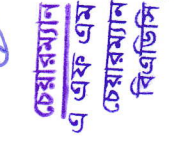 চেয়ারম্যান
এ এফ এম
চেয়ারম্যান
বিএডিসি